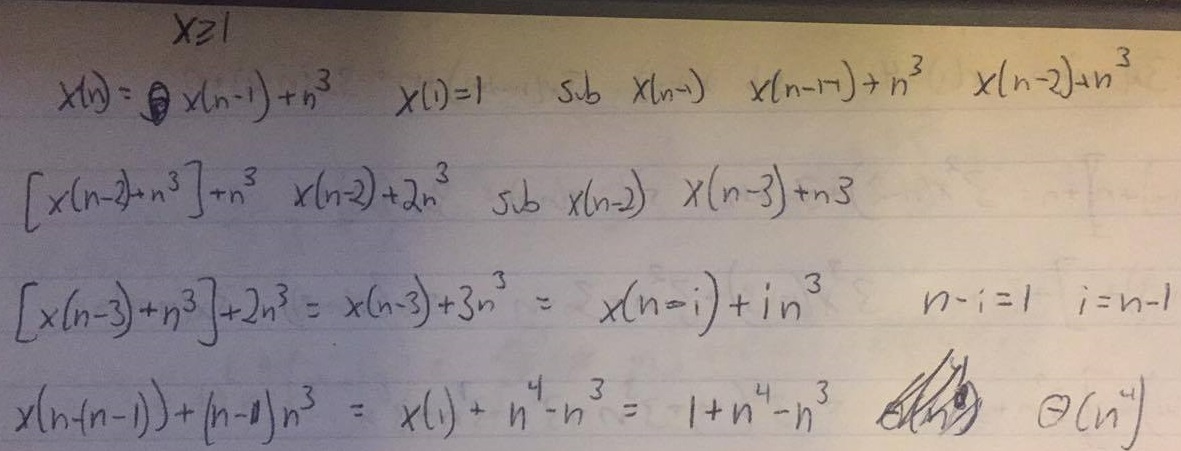 x≥1
x(n) = x(n-1)+n³ x(1)=1 sub x(n-1) x(n-1-1)+n³ x(n-2)+n³
[x(n-2)+n³]+n³ x(n-2)+2n³ sub x(n-2) x(n-3)+n3
[x(n-3)+n³]+2n³ = x(n-3)+3n³ = x(n-i)+in³ n-i=1 i=n-1
x(n-(n-1))+(n-1)n³ = x(1)+n⁴-n³ = 1+n⁴-n³ Θ(n⁴)